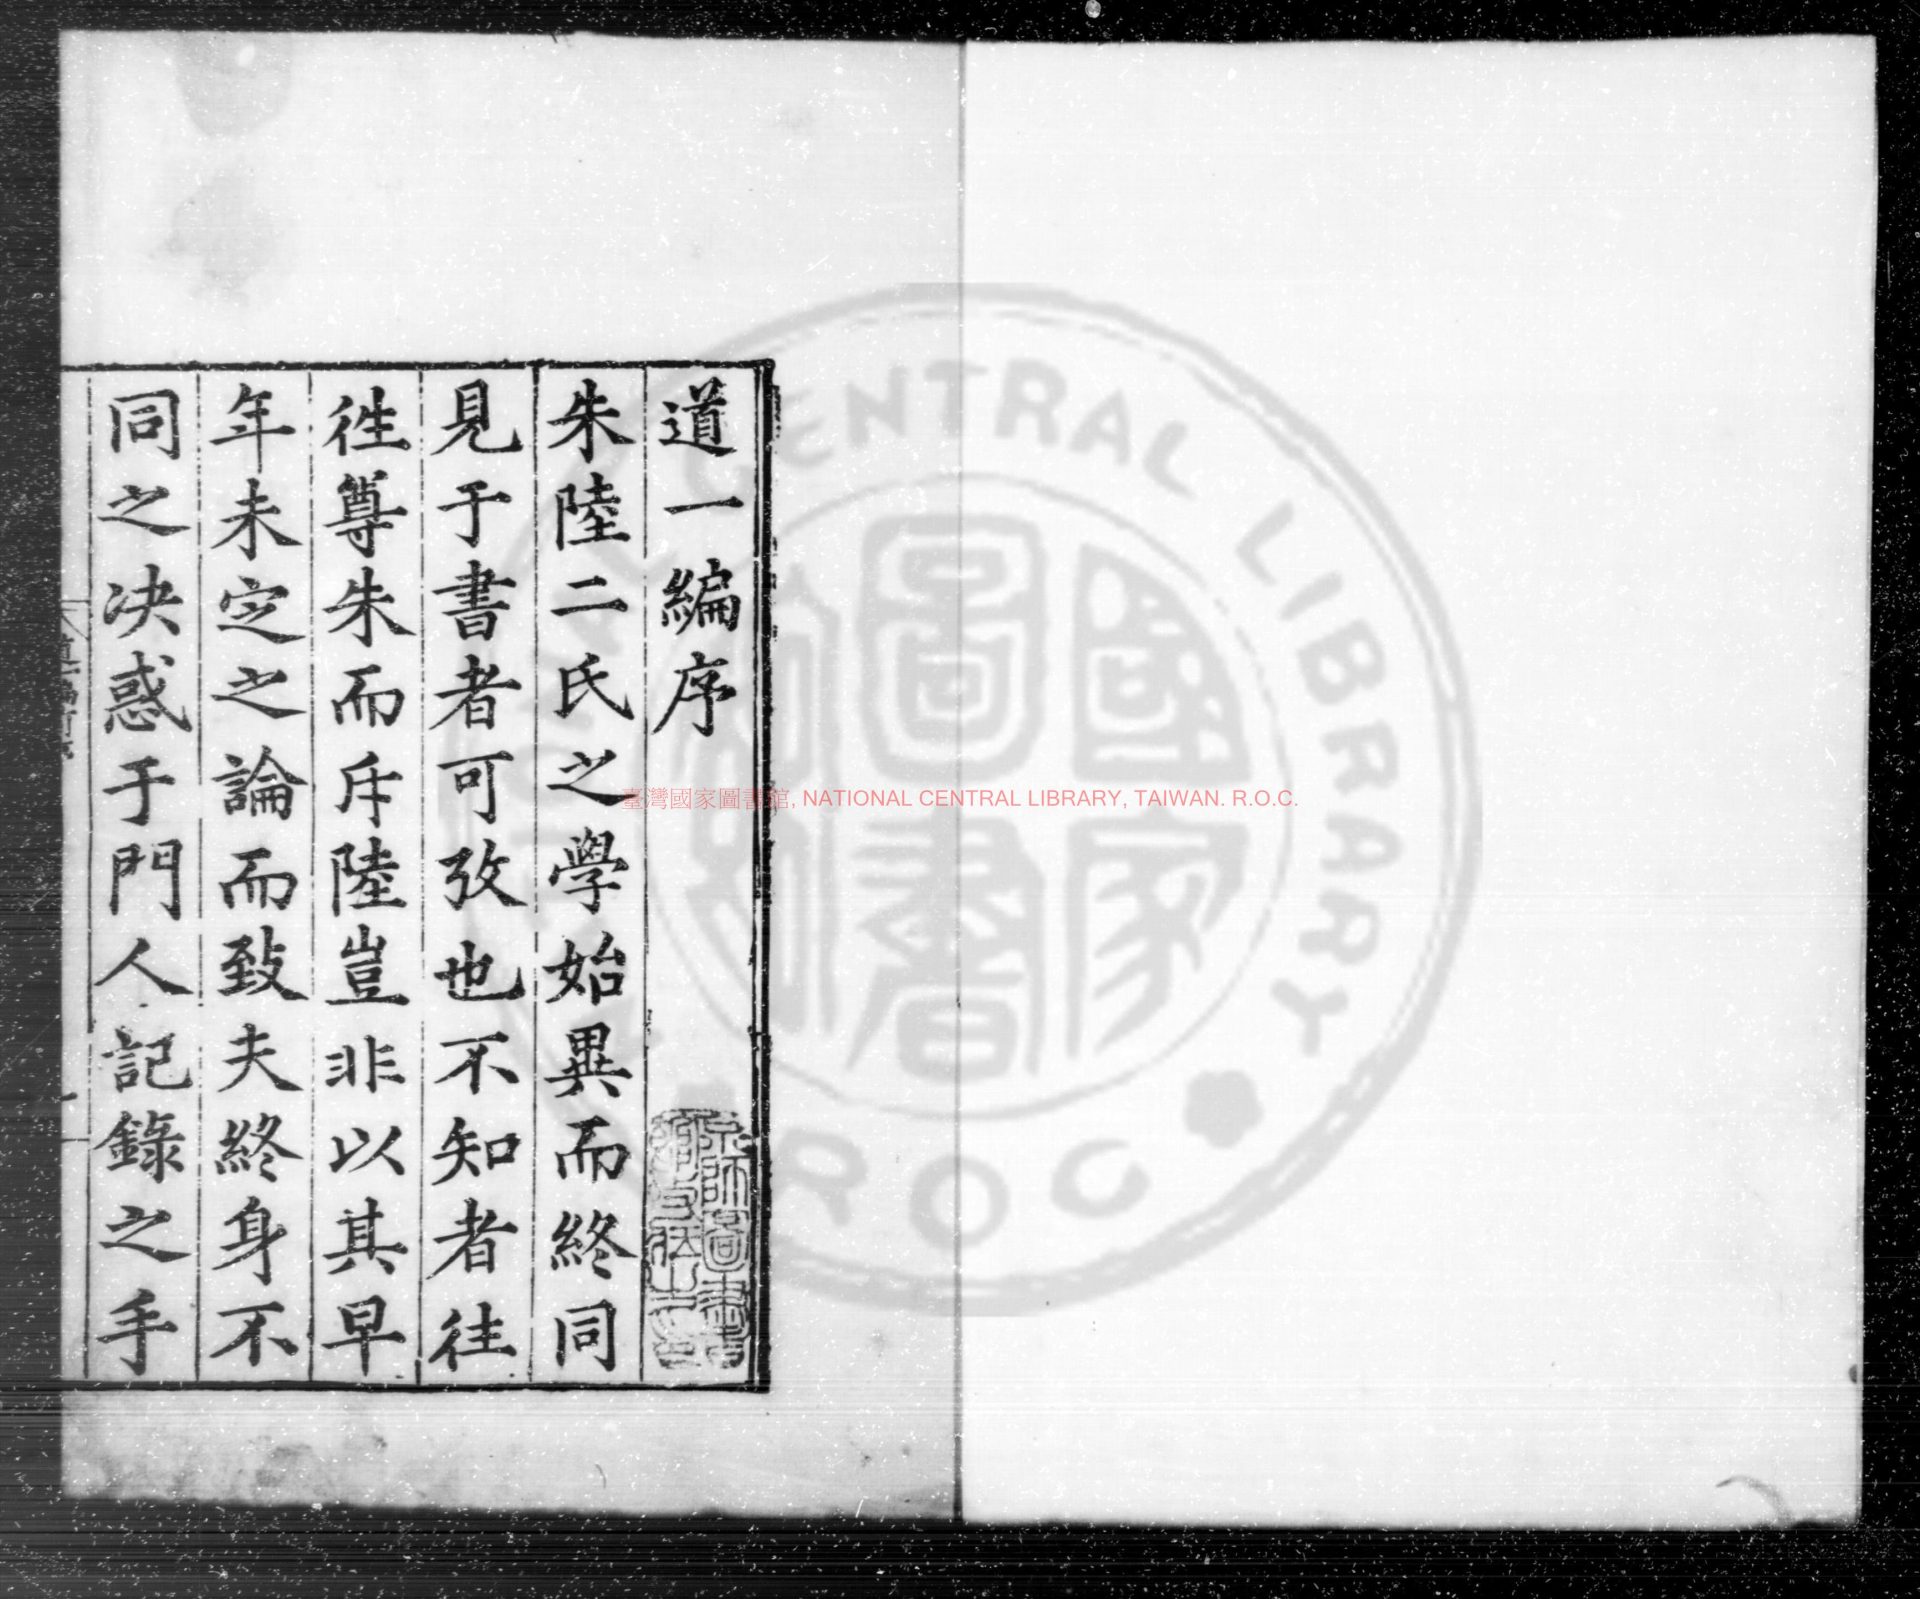 道一編序
朱陸二氏之學始異而終同
見于書者可攷也不知者往
徃尊朱而斥陸豈非以其早
年未定之論而致夫終身不
同之决惑于門人記錄之手
臺灣國家圖書館, NATIONAL CENTRAL LIBRARY, TAIWAN. R.O.C.
CENTRAL LIBRARY
國家
圖書
R O C